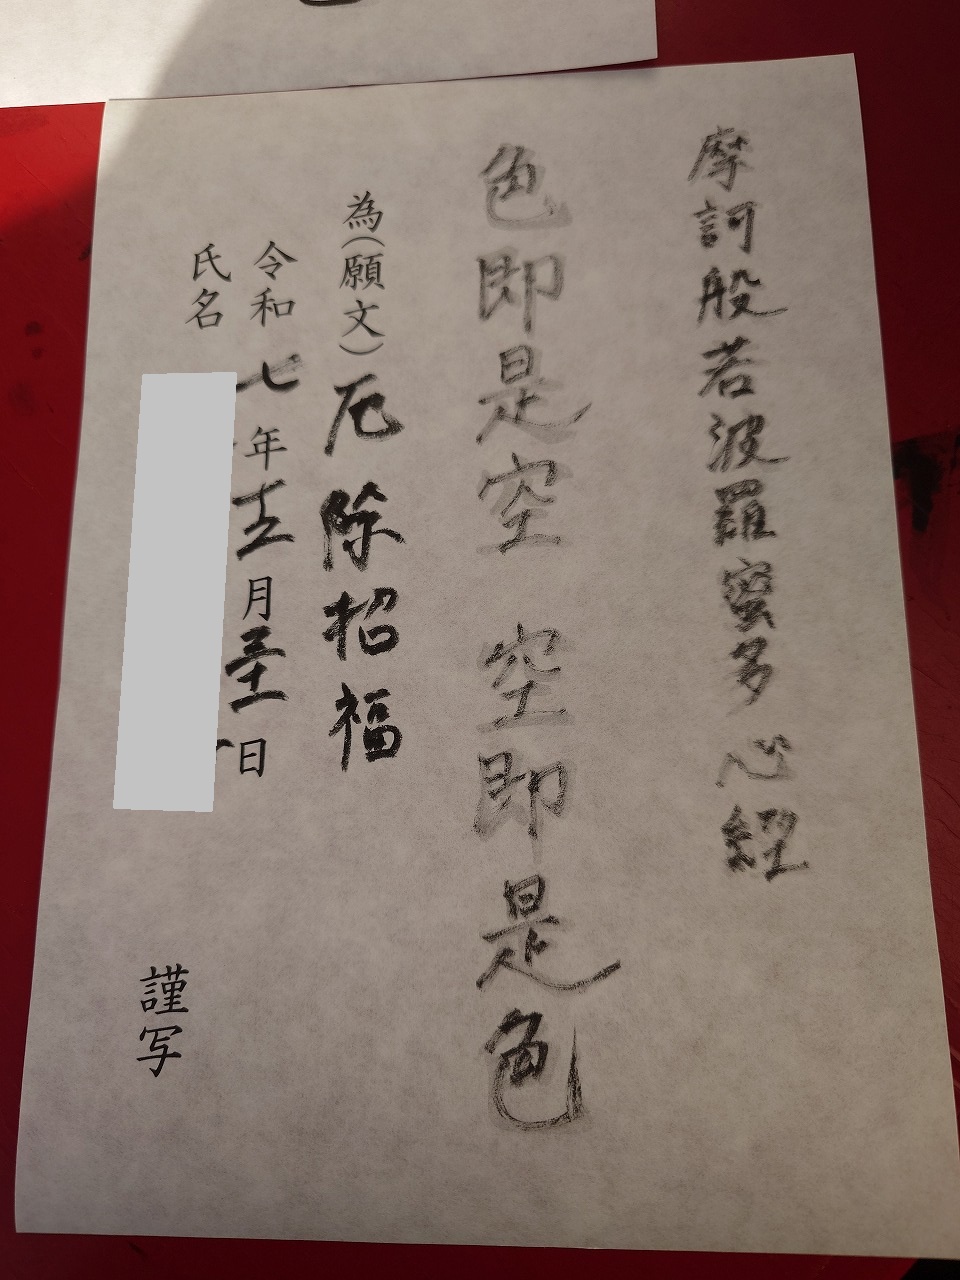 摩訶般若波羅蜜多心経
色即是空 空即是色
為(願文)厄除招福
令和七年十二月三十一日
氏名 謹写